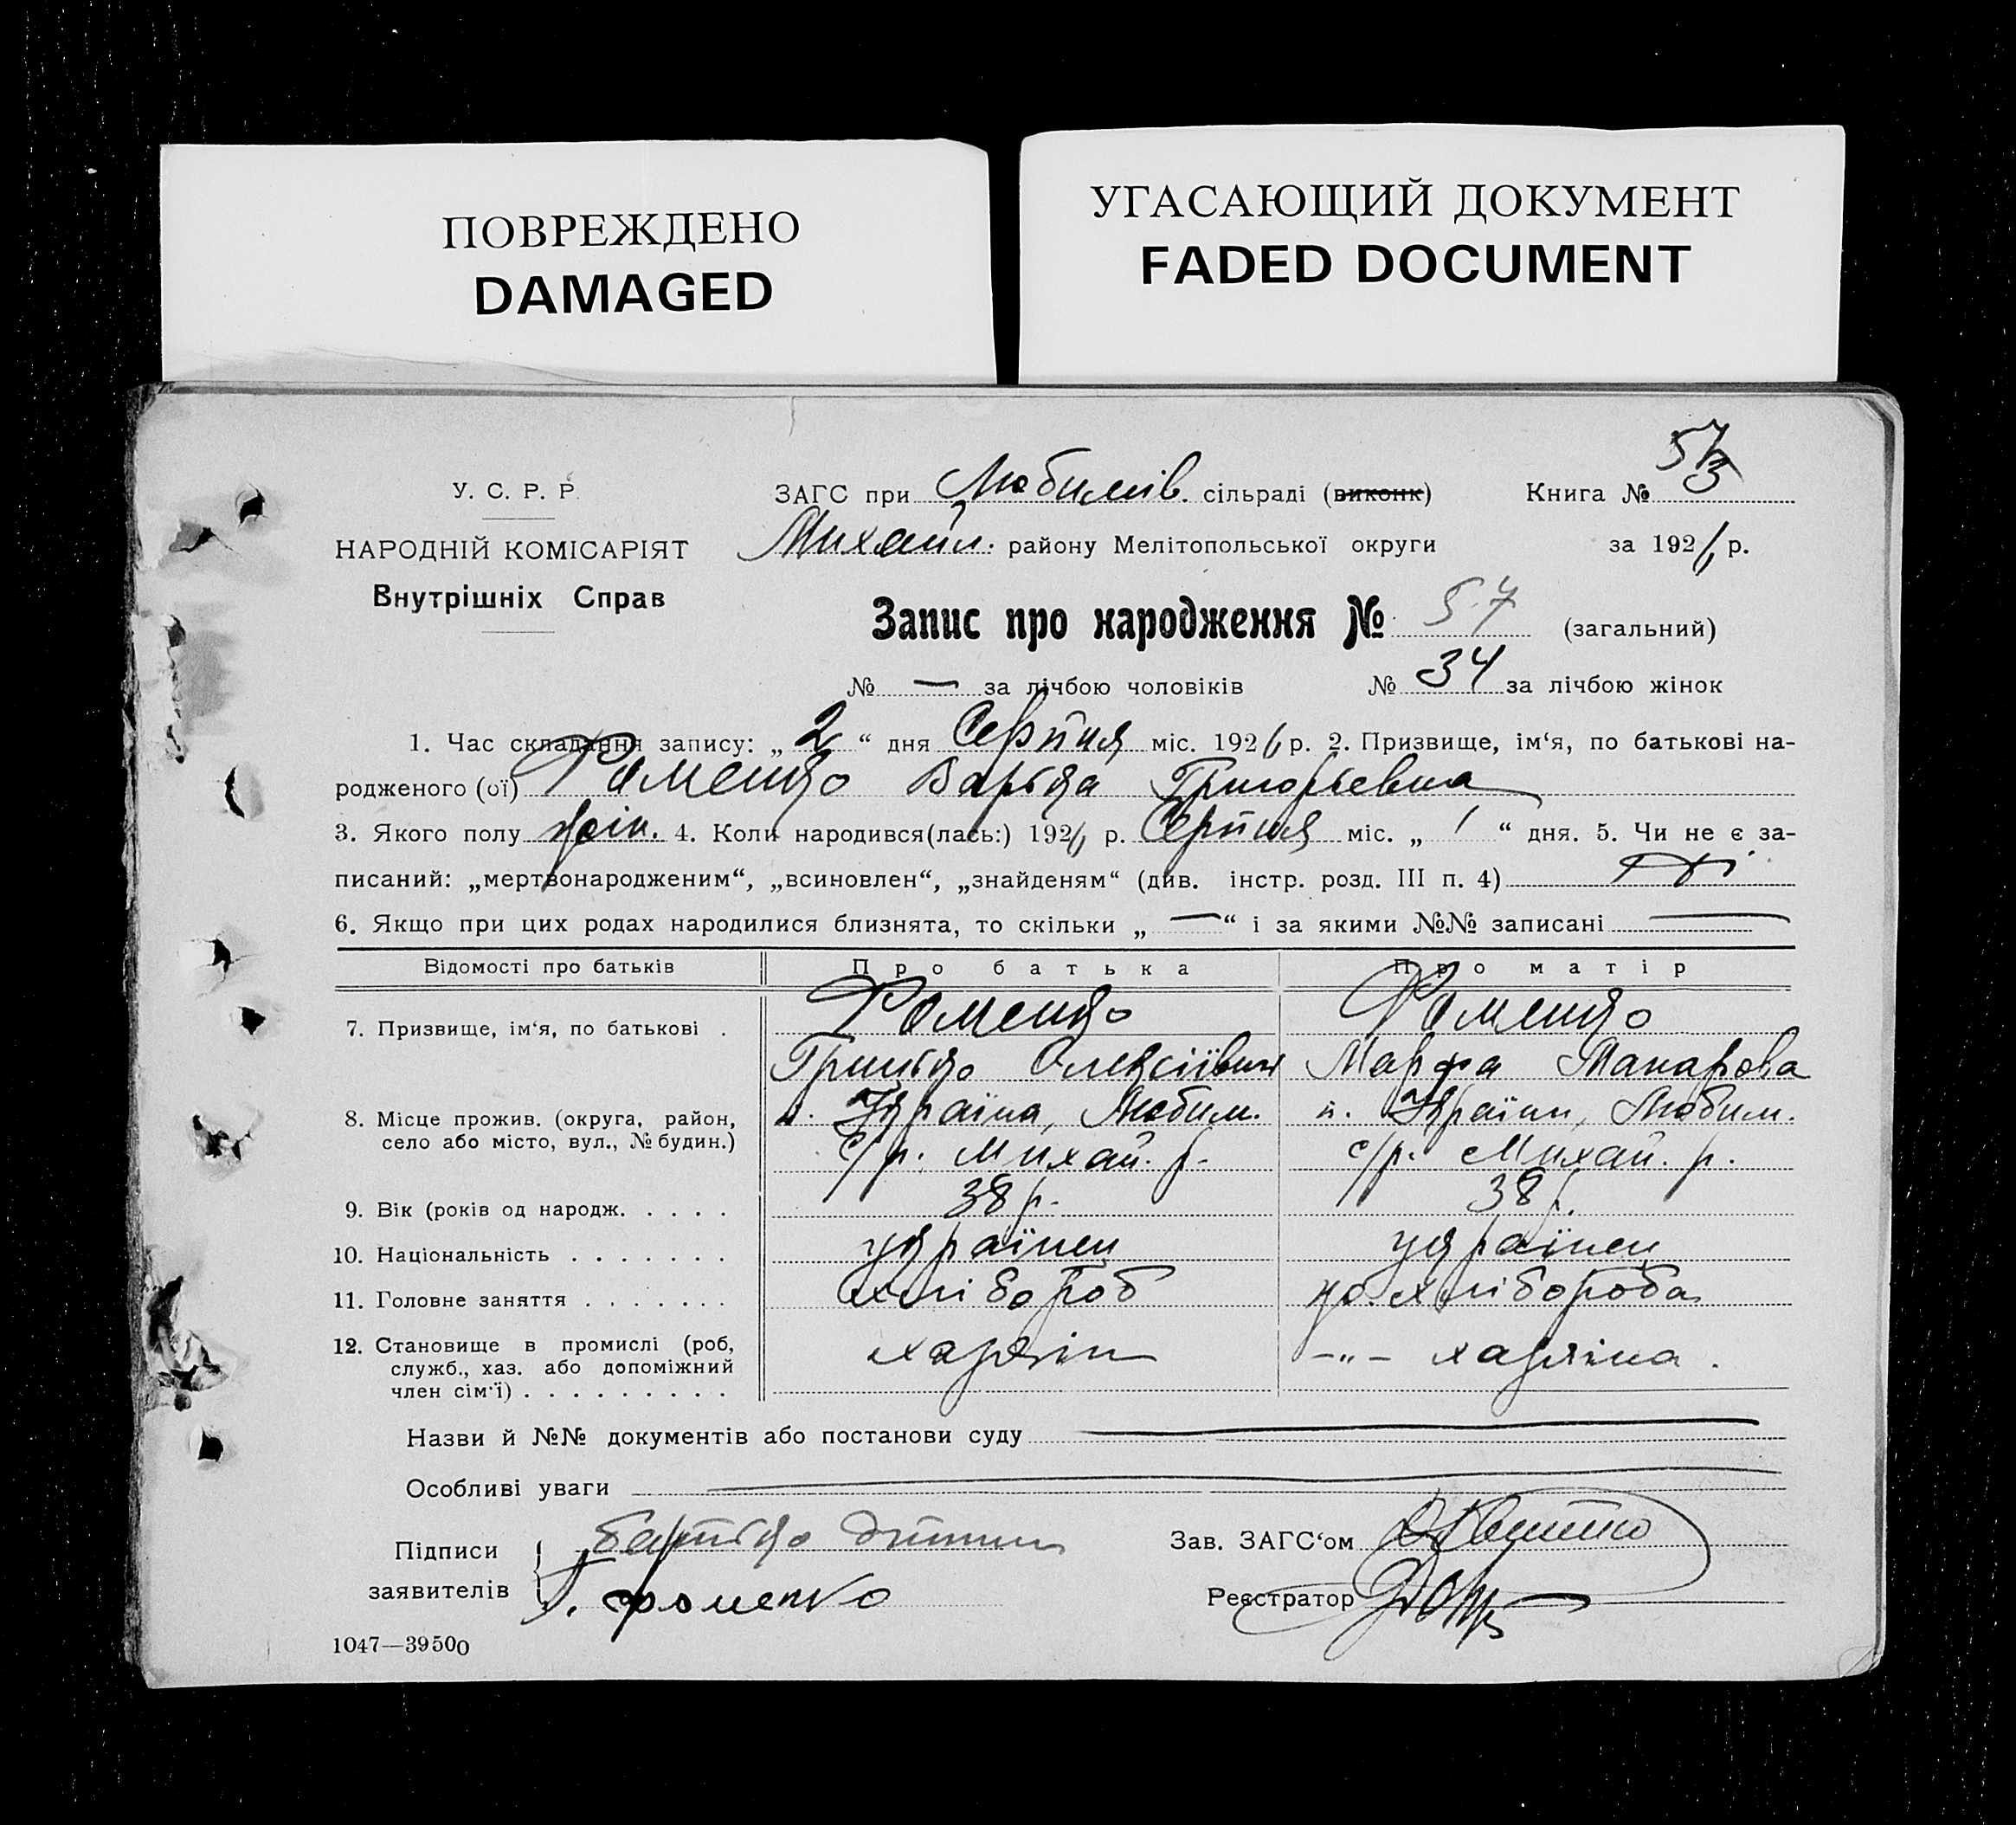 ПОВРЕЖДЕНО
DAMAGED
УГАСАЮЩИЙ ДОКУМЕНТ
FADED DOCUMENT
У. С. Р. Р.
НАРОДНІЙ КОМІСАРІЯТ
Внутрішніх Справ
57
ЗАГС при Любимів. сільраді (виконк) Книга № 3
Михайл. району Мелітопольської округи за 1926 р.
Запис про народження № 57 (загальний)
№ — за лічбою чоловіків № 34 за лічбою жінок
1. Час складання запису: „ 2 “ дня Серпня міс. 1926 р. 2. Призвище, ім‘я, по батькові на-
родженого (ої) Фоменко Варька Григорьевна
3. Якого полу жін. 4. Коли народився(лась:) 1926 р. Серпня міс. „ 1 “ дня. 5. Чи не є за-
писаний: „мертвонародженим“, „всиновлен“, „знайденям“ (див. інстр. розд. III п. 4) ні
6. Якщо при цих родах народилися близнята, то скільки „ — “ і за якими №№ записані —
Відомості про батьків Про батька Про матір
7. Призвище, ім‘я, по батькові . Фоменко Фоменко
Грицько Олексіївич Марфа Макарова
8. Місце прожив. (округа, район, село або місто, вул., № будин.) п. Україна, Любим. п. Україна, Любим.
с/р. Михай. р. с/р. Михай. р.
9. Вік (років од народж. . . . . 38 р. 38 р.
10. Національність . . . . . . . українец українец
11. Головне заняття . . . . . . . хлібороб хлібороба
12. Становище в промислі (роб, служб., хаз. або допоміжний член сім‘ї) . . . . . . . . . хазяін -„- хазяіна.
Назви й №№ документів або постанови суду
Особливі уваги
Підписи заявителів батько дитини
Г. фоменко
Зав. ЗАГС‘ом
Реєстратор
1047—39500